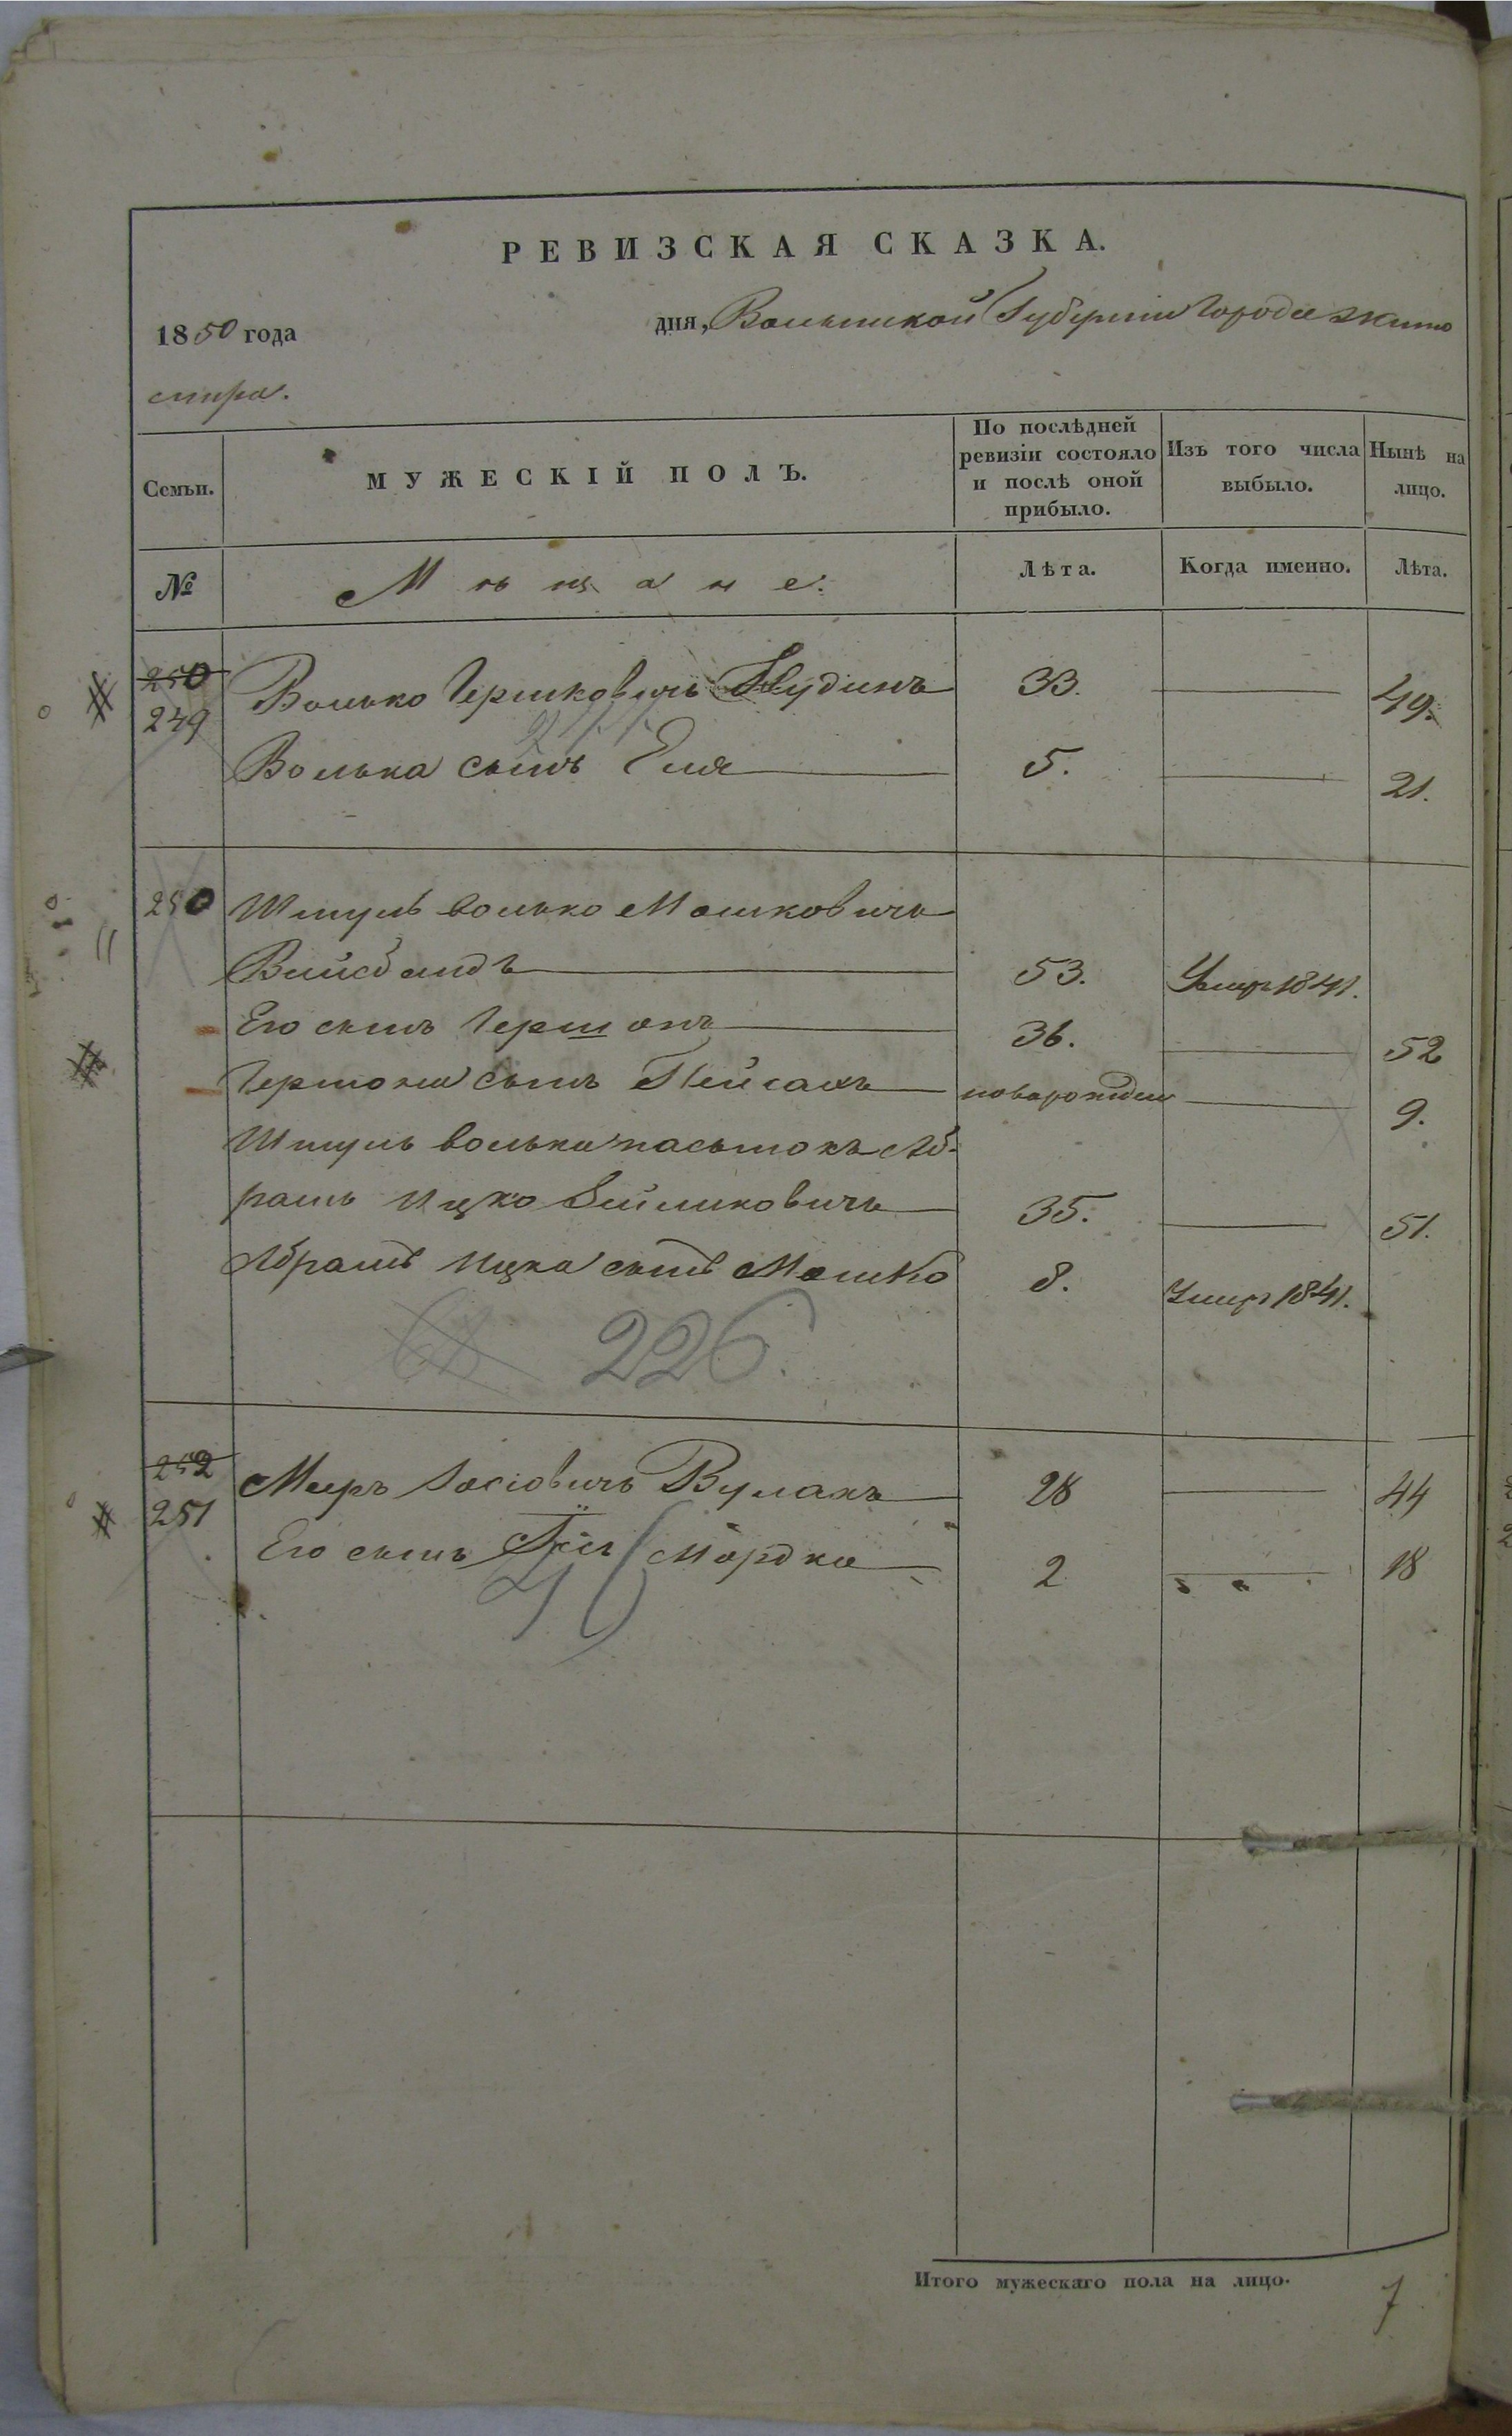 РЕВИЗСКАЯ СКАЗКА.
1850 года дня, Волынской Губернии Города Жито
мира.
Семьи. МУЖЕСКІЙ ПОЛЪ. По послѣдней ревизіи состояло и послѣ оной прибыло. Изъ того числа выбыло. Нынѣ на лицо.
№ Мѣщане. Лѣта. Когда именно. Лѣта.
250
249 Волько Гершковичъ 33. 49.
Волька сынъ Еля 5. 21.
250 Шмуль волько Мошковичъ
Вайсбандъ 53. Умеръ 1841.
Его сынъ Гершонъ 36. 52
Гершона сынъ Пейсахъ новорожден 9.
Шмуль волька пасынокъ Аб-
рамъ Ицко Зейликовичъ 35. 51.
Абрамъ Ицка сынъ Мошко 8. Умеръ 1841.
226.
252
251 Мееръ Іосіовичъ Вулахъ 28 44
Его сынъ Мордко 2 18
46
Итого мужескаго пола на лицо. 7